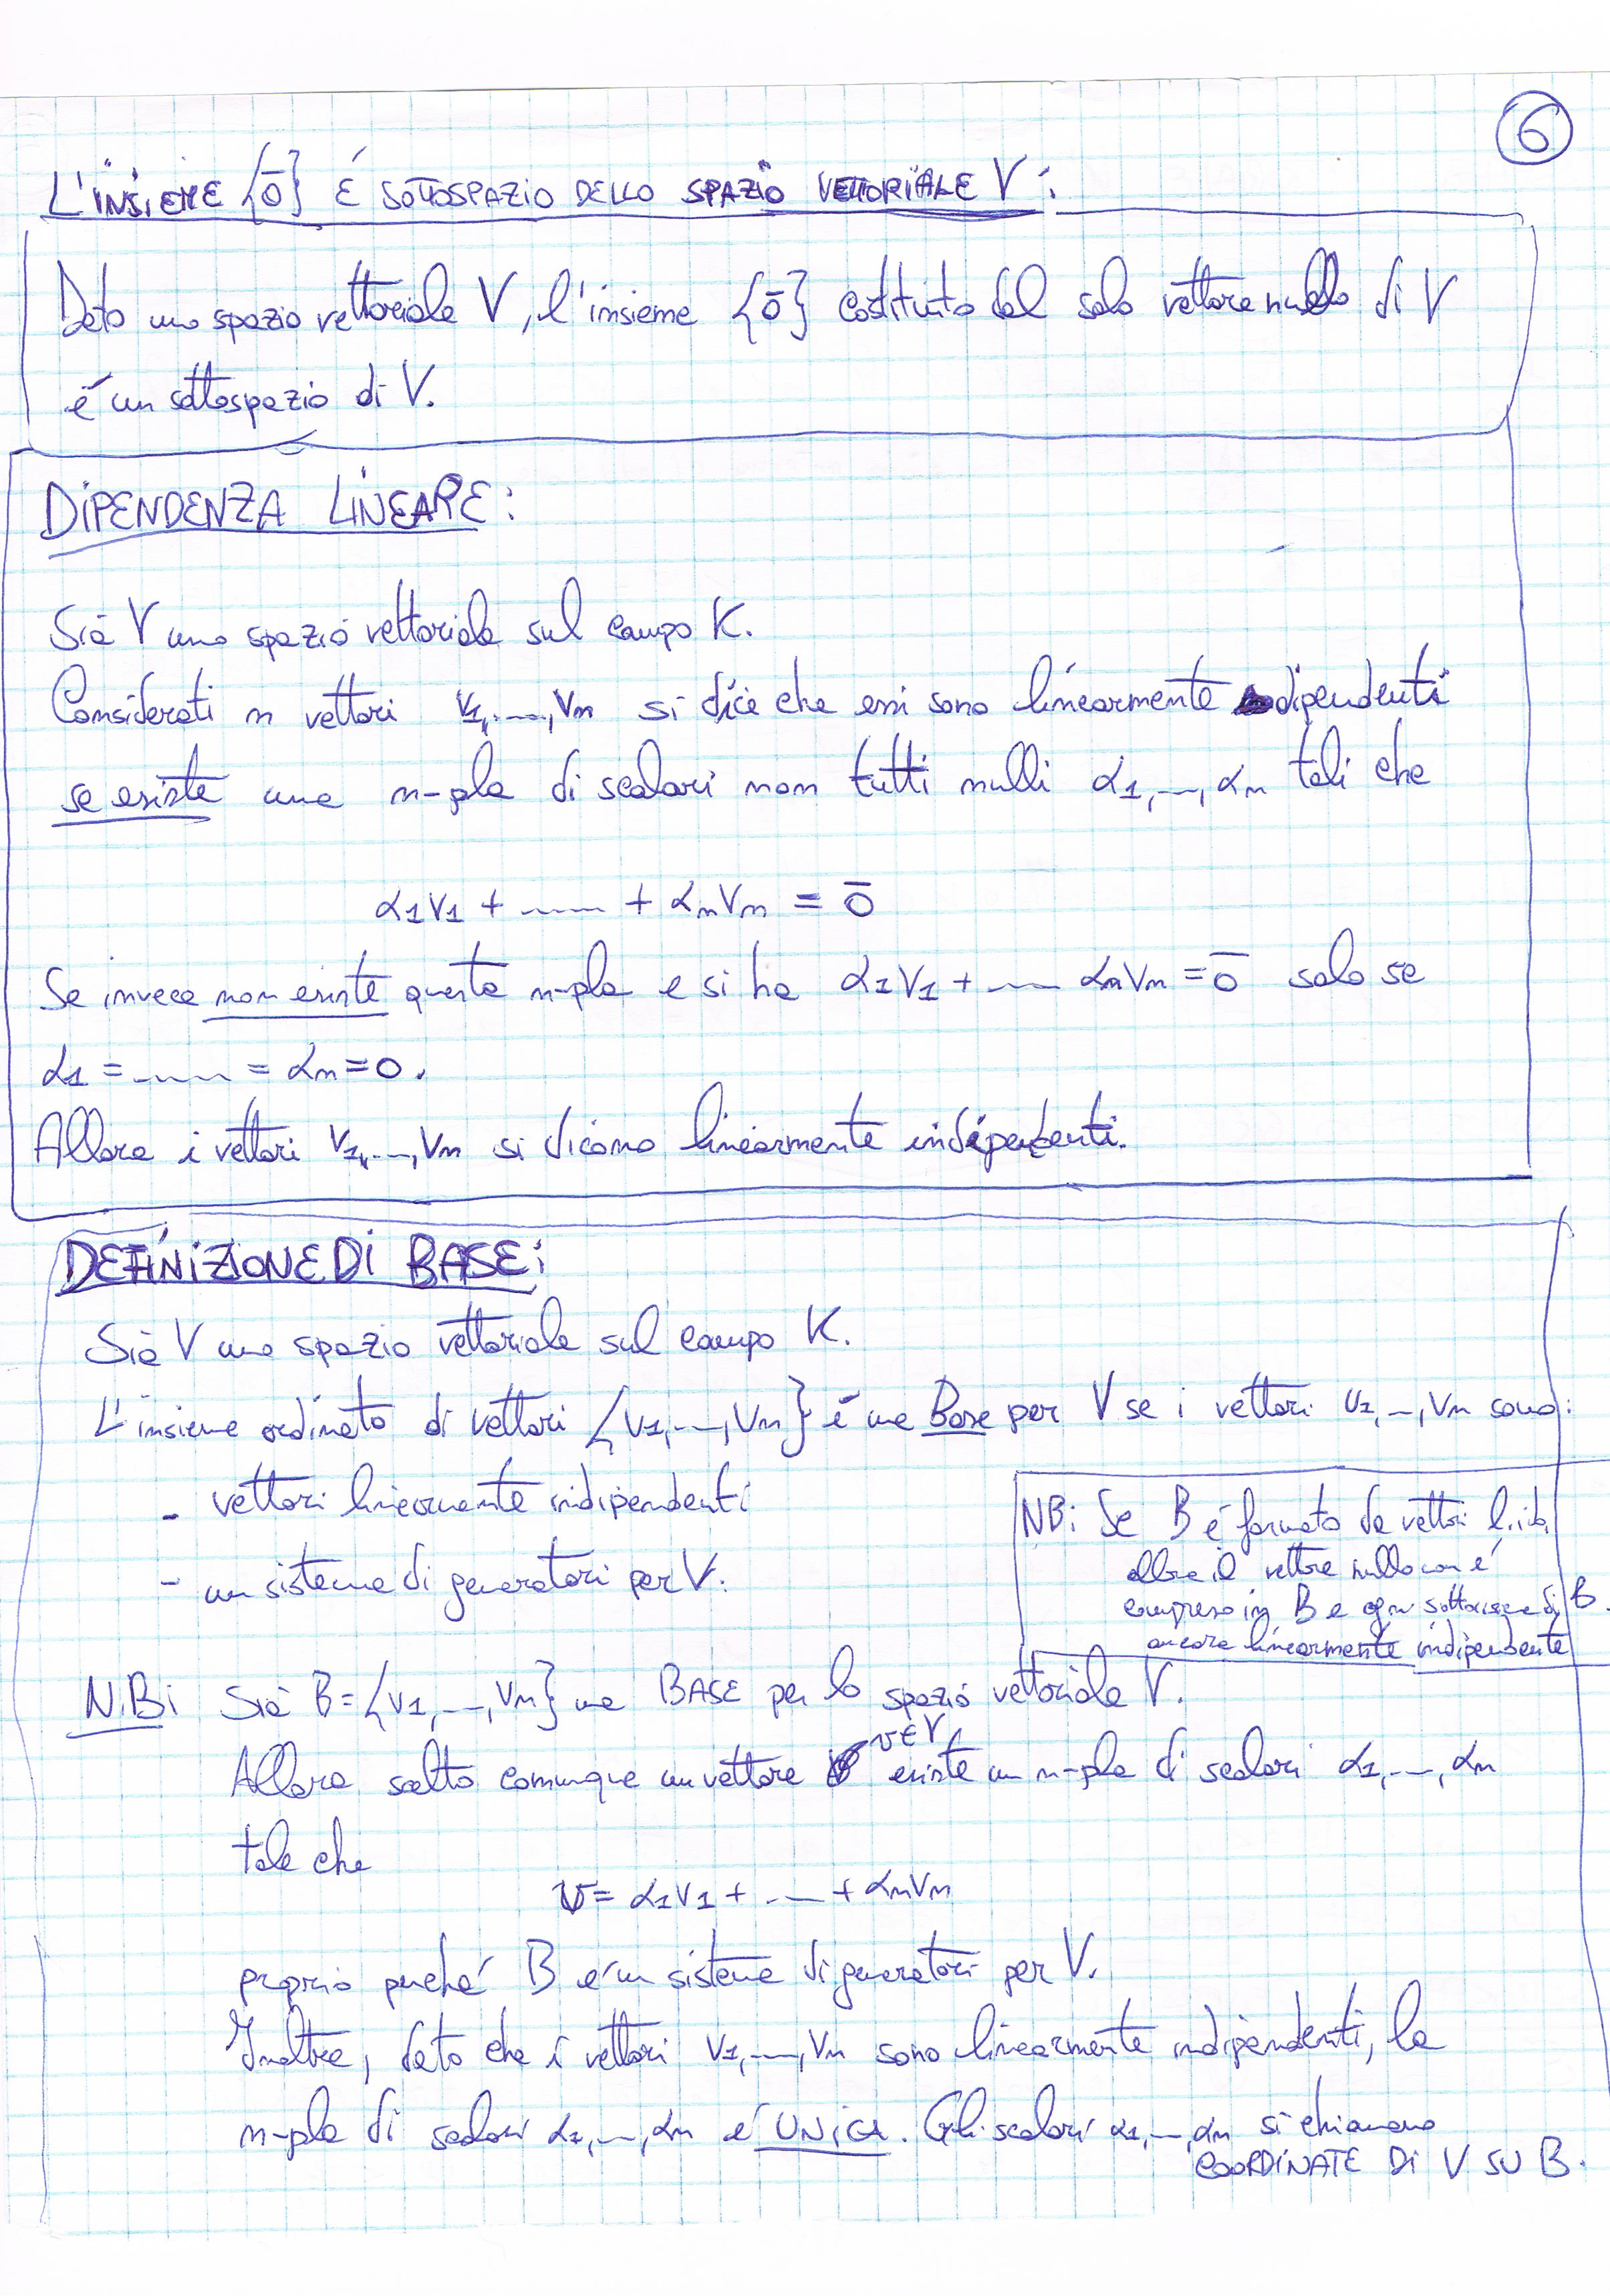 6
L'INSIEME {ō} É SOTTOSPAZIO DELLO SPAZIO VETTORIALE V:
Dato uno spazio vettoriale V, l'insieme {ō} costituito dal solo vettore nullo di V
é un sottospazio di V.
DIPENDENZA LINEARE:
Sia V uno spazio vettoriale sul campo K.
Considerati n vettori v1,...,vn si dice che essi sono linearmente dipendenti
se esiste una n-pla di scalari non tutti nulli α1,...,αn tali che
α1v1 + ...... + αnvn = ō
Se invece non esiste questa n-pla e si ha α1v1 + ..... αnvn = ō solo se
α1 = ...... = αn = 0.
Allora i vettori v1,...,vn si dicono linearmente indipendenti.
DEFINIZIONE DI BASE:
Sia V uno spazio vettoriale sul campo K.
L'insieme ordinato di vettori {v1,...,vn} é una Base per V se i vettori v1,...,vn sono:
- vettori linearmente indipendenti
- un sistema di generatori per V.
NB: Se B é formato da vettori l.id.
allora il vettore nullo non é
compreso in B e ogni sottoinsieme di B
ancora linearmente indipendente
N.B: Sia B = {v1,...,vn} una BASE per lo spazio vettoriale V.
Allora scelto comunque un vettore v∈V esiste un n-pla di scalari α1,...,αn
tale che
v = α1v1 + ... + αnvn
proprio perché B é un sistema di generatori per V.
Inoltre, dato che i vettori v1,...,vn sono linearmente indipendenti, la
n-pla di scalari α1,...,αn é UNICA. Gli scalari α1,...,αn si chiamano
COORDINATE DI V SU B.